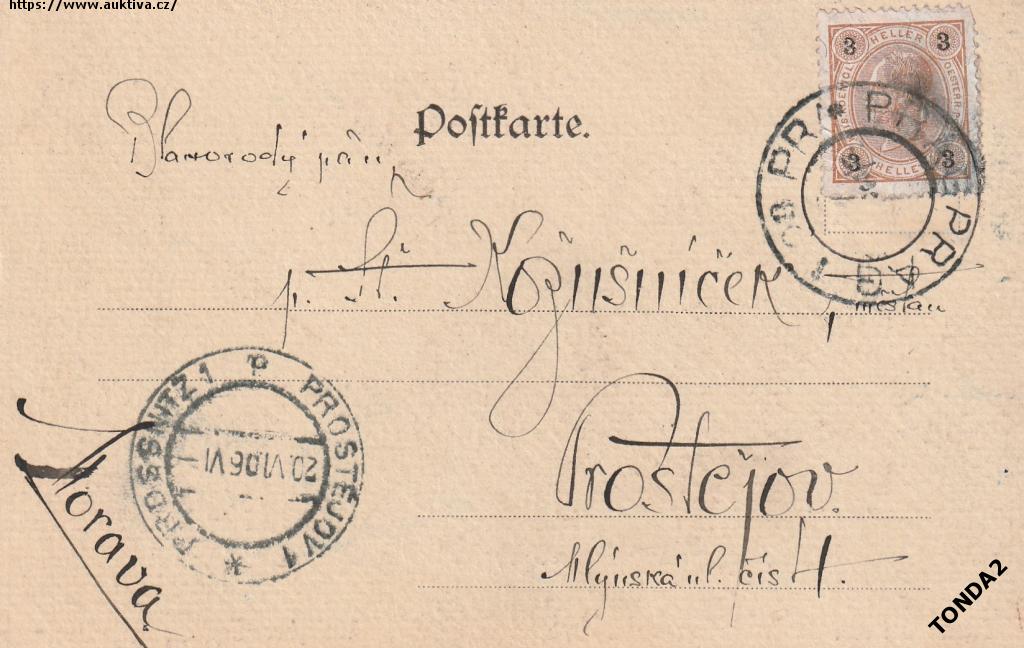 https://www.auktiva.cz/
3 HELLER 3
3 HELLER 3
Postkarte.
Blahorodý pán
p. St. Kožušníček,
PRAG PRAHA
PROSSNITZ 1 P PROSTĚJOV 1 *
20.VI.06 VI
Prostějov.
Mlýnská ul. čís 4.
Morava
TONDA2